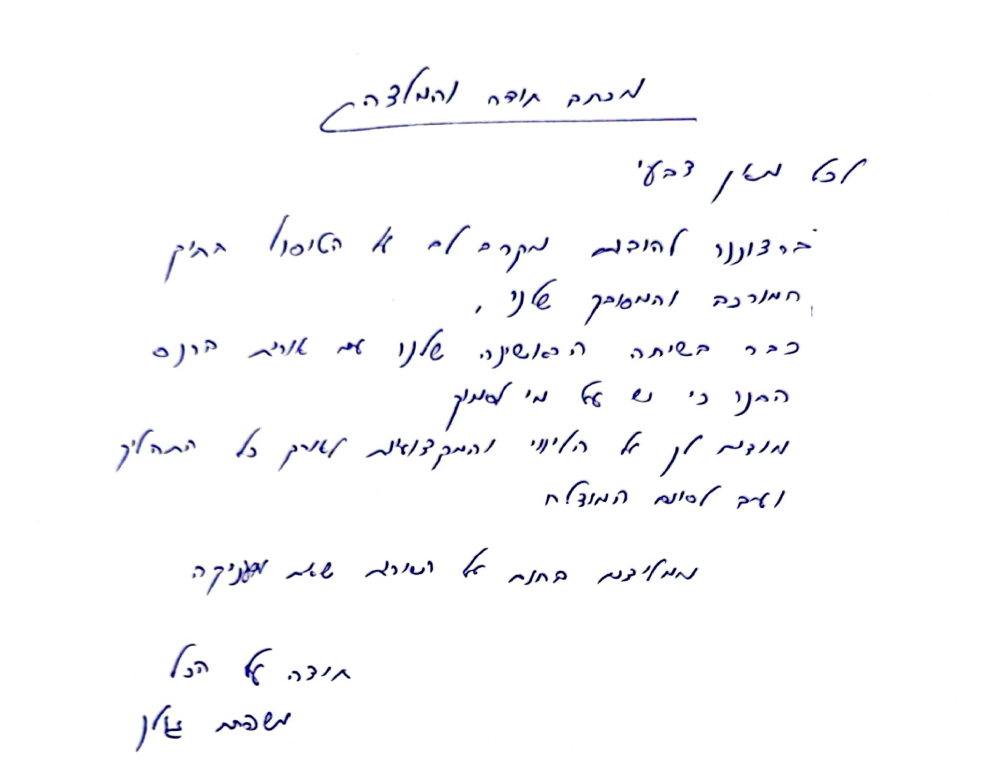 מכתב תודה והמלצה
לכל מאן דבעי
ברצוננו להודות מקרב לב על הטיפול בתיק
המורכב והמסובך שלנו,
כבר בשיחה הראשונה שלנו עם אורית
הבנו כי יש על מי לסמוך
מודים לך על הליווי והמקצועיות לאורך כל התהליך
ועד לסיום המוצלח
ממליצים בחום על השירות שאת מעניקה
תודה על הכל
משפחת